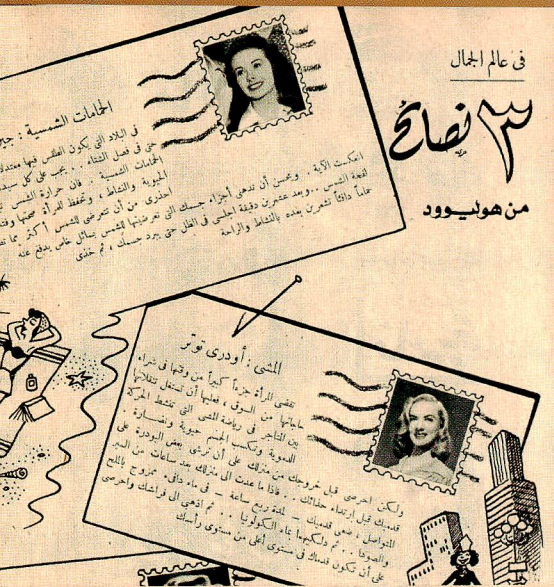 فى عالم الجمال
٣ نصائح
من هوليوود
الحمامات الشمسية :
فى البلاد التى يكون الطقس فيها معتدلا
حتى فى فصل الشتاء . . يجب على كل سيدة
الحمامات الشمسية . فان حرارة الشمس
الحيوية والنشاط ، وتحفظ للمرأة صحتها
احذرى من أن تتعرضى للشمس أكثر مما
انعكست الآية . ويحسن أن تدهنى أجزاء جسمك التى تعرضينها للشمس بسائل خاص يدفع عنه
لفحة الشمس . . وبعد عشرين دقيقة اجلسى فى الظل حتى يبرد جسمك ، ثم خذى
حماما دافئا تشعرين بعده بالنشاط والراحة
المشى : أودرى توتر
تقضى المرأة جزءاً كبيراً من وقتها فى شراء
حاجاتها من السوق ، فعليها أن تستغل تنقلاتها
بين المتاجر فى رياضة المشى التى تنشط الحركة
الدموية وتكسب الجسم حيوية ونضارة .
ولكن احرصى قبل خروجك من منزلك على أن ترشى بعض البودرة على
قدميك قبل ارتداء حذائك . . فاذا ما عدت الى منزلك بعد ساعات من السير
المتواصل ، ضعى قدميك – لمدة ربع ساعة – فى ماء دافىء ممزوج بالملح
والصودا . . ثم دلكيهما بماء الكولونيا . . ثم اذهبى الى فراشك واحرصى
على أن تكون قدماك فى مستوى أعلى من مستوى رأسك